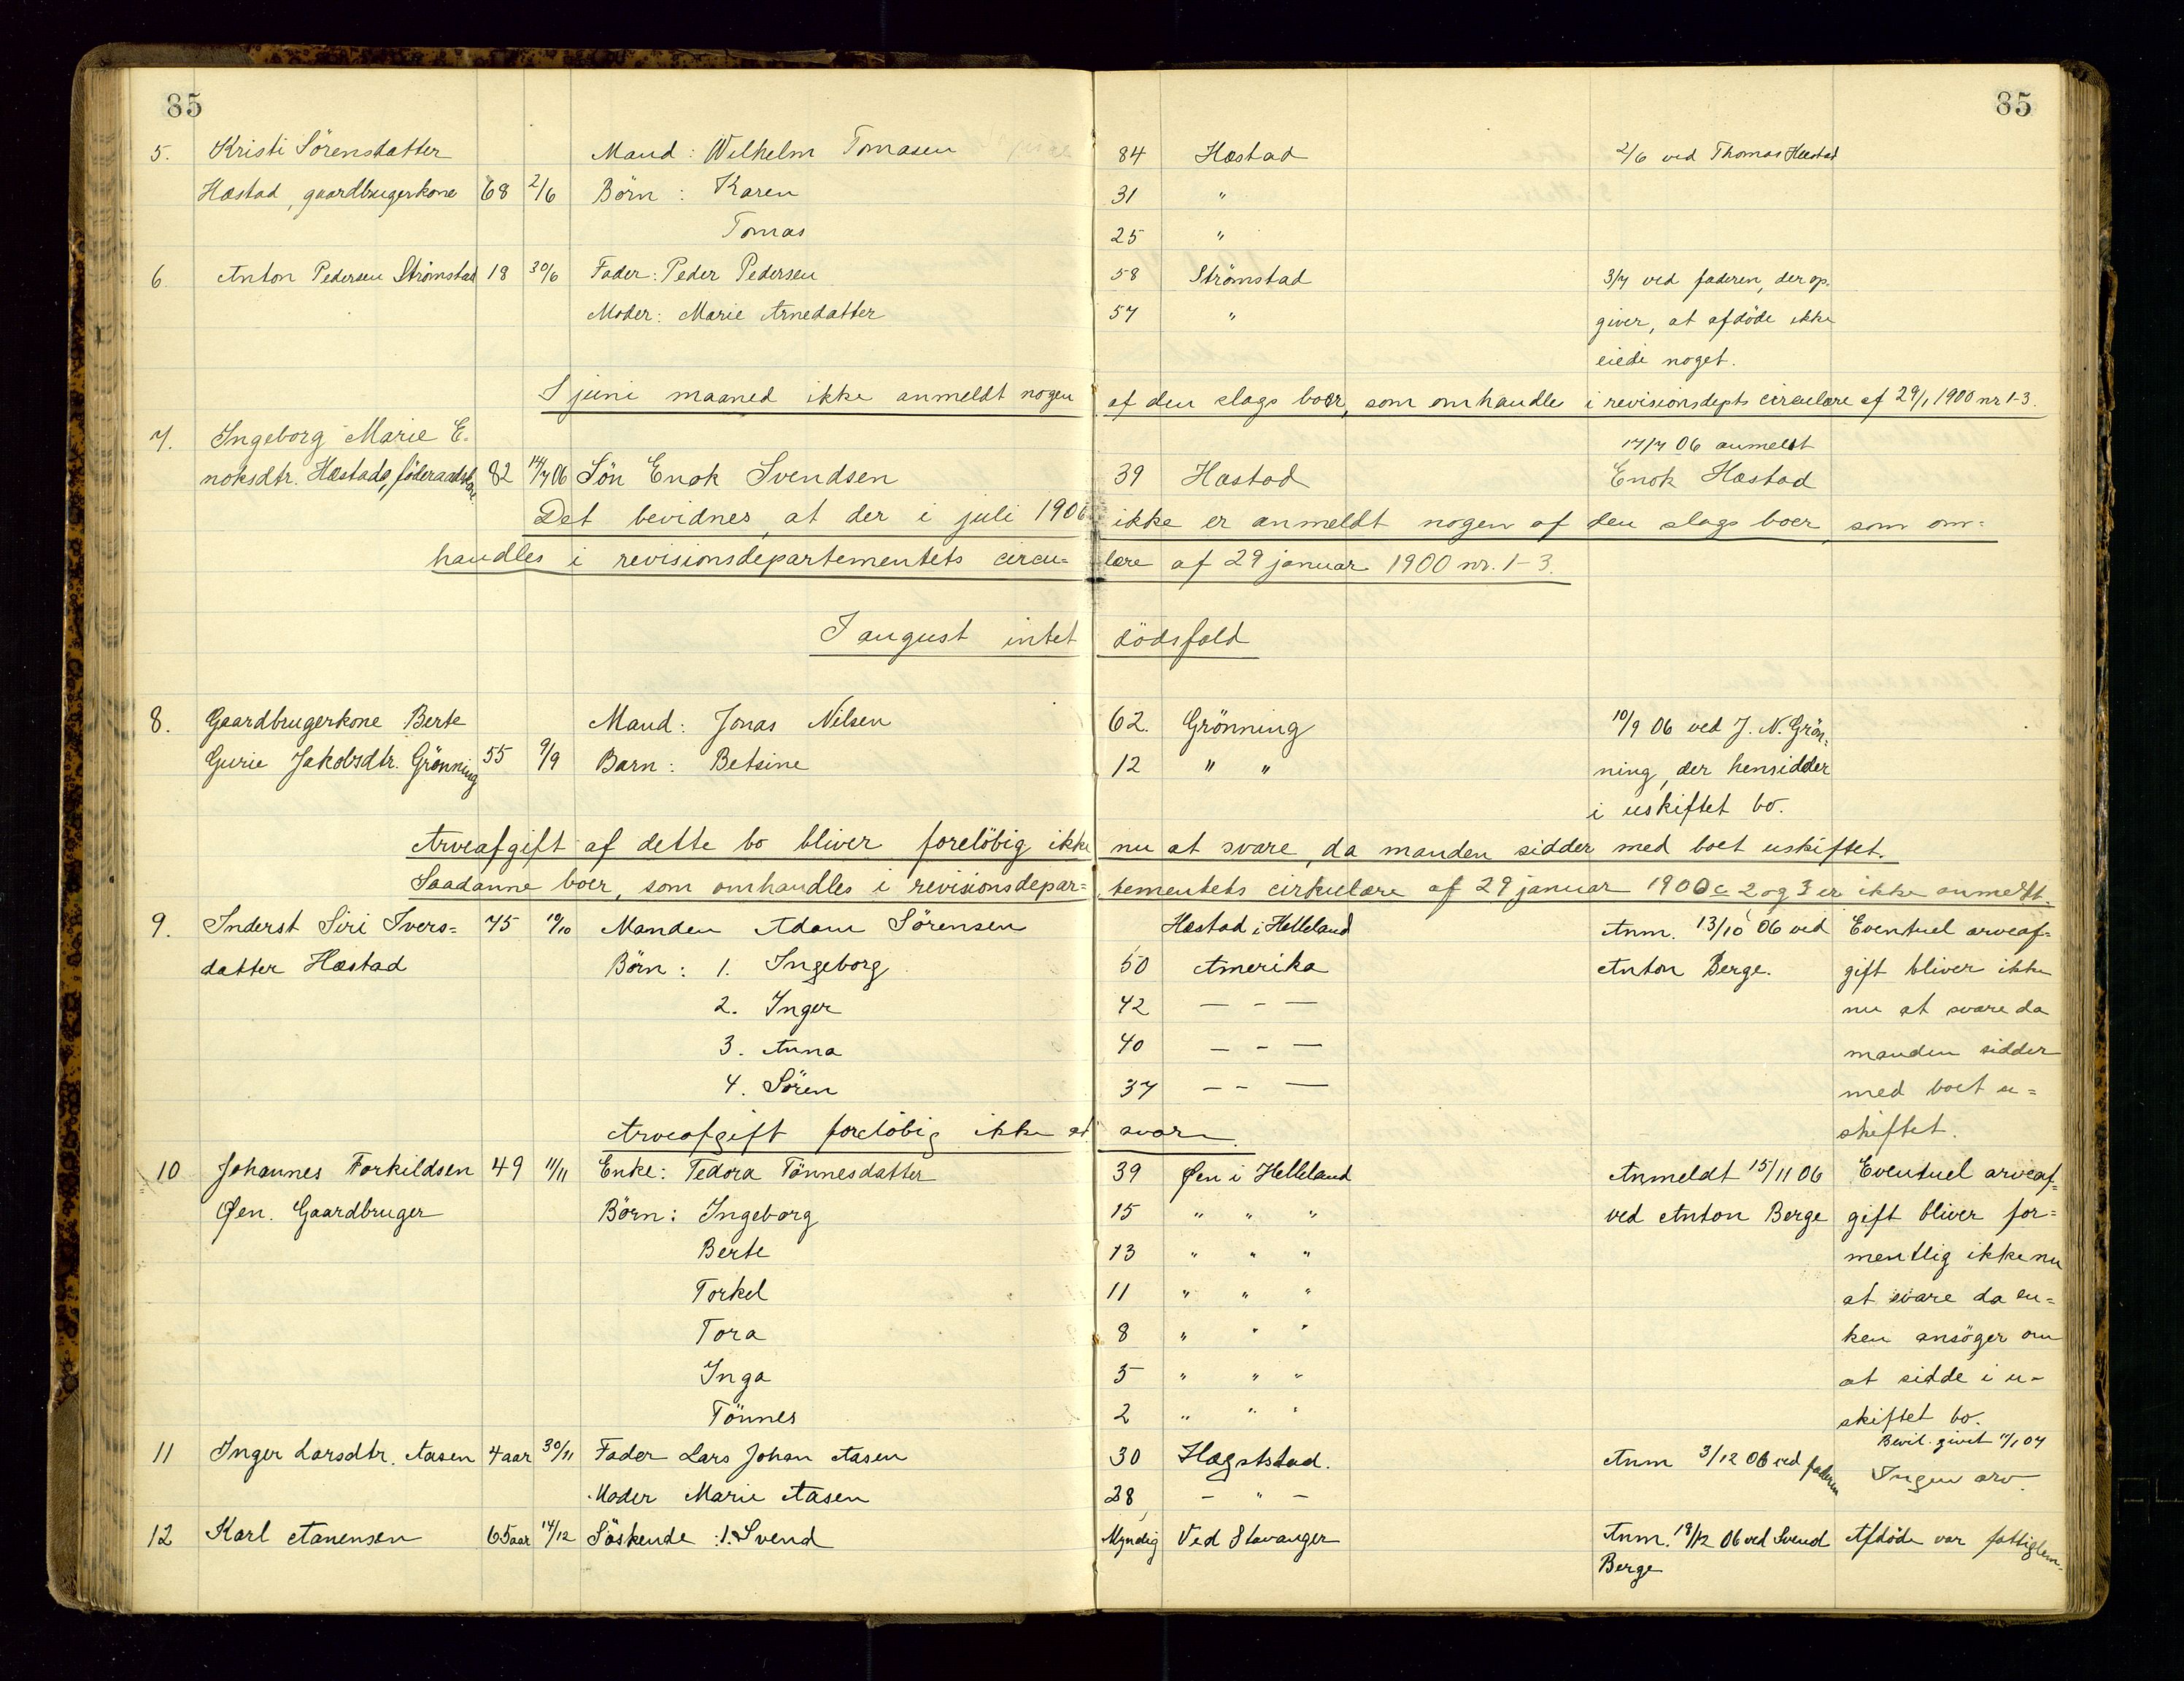 85 85
5. Kristi Sörensdatter Mand: Wilhelm Tomasen 84 Hæstad 2/6 ved Thomas Hæstad
Hæstad, gaardbrugerkone 68 2/6 Börn: Karen 31 "
Tomas 25 "
6. Anton Pedersen Strömstad 18 30/6 Fader: Peder Pedersen 58 Strömstad 3/7 ved faderen, der op-
Moder: Marie Arnedatter 57 " giver, at afdöde ikke
eiede noget.
I juni maaned ikke anmeldt nogen af den slags boer, som omhandle i revisionsdepts circulære af 29/1 1900 nr 1-3.
7. Ingeborg Marie E- 17/7 06 anmeldt
noksdtr. Hæstad, föderaadskone 82 14/7 06 Sön Enok Svendsen 39 Hæstad Enok Hæstad
Det bevidnes, at der i juli 1906 ikke er anmeldt nogen af den slags boer, som om=
handles i revisionsdepartementets circu= lære af 29 januar 1900 nr. 1-3.
I august intet dödsfald
8. Gaardbrugerkone Berte Mand: Jonas Nilsen 62. Grönning 10/9 06 ved J. N. Grön=
Gurie Jakobsdtr. Grönning 55 9/9 Barn: Betsine 12 " " ning, der hensidder
i uskiftet bo.
Arveafgift af dette bo bliver forelöbig ikke nu at svare, da manden sidder med boet uskiftet.
Saadanne boer, som omhandles i revisionsdepar= tementets cirkulære af 29 januar 1900 c 2 og 3 er ikke anmeldt.
9. Inderst Siri Ivers= 75 10/10 Manden Adam Sörensen Hæstad i Helleland Anm. 13/10 06 ved Eventuel arveaf=
datter Hæstad Börn: 1. Ingeborg 50 Amerika Anton Berge. gift bliver ikke
2. Inger 42 — - — nu at svare da
3. Anna 40 — - — manden sidder
4. Sören 37 — - — med boet u=
Arveafgift forelöbig ikke at svare. skiftet.
10 Johannes Torkildsen 49 11/11 Enke: Tedora Tönnesdatter 39 Øen i Helleland Anmeldt 15/11 06 Eventuel arveaf=
Øen. Gaardbruger Börn: Ingeborg 15 " " " ved Anton Berge gift bliver for=
Berte 13 " " " mentlig ikke nu
Torkel 11 " " " at svare da en=
Tora 8 " " " ken ansöger om
Inga 5 " " " at sidde i u-
Tönnes 2 " " " skiftet bo.
Bevil. givet
11 Inger Larsdtr. Aasen 4 aar 30/11 Fader Lars Johan Aasen 30 Hægstad. Anm 3/12 06 ved faderen Ingen arv.
Moder Marie Aasen 28 — " —
12 Karl Aanensen 65 aar 14/12 Söskende: 1. Svend Myndig Ved Stavanger Anm. 18/12 06 ved Svend Afdöde var fattiglem.
Berge